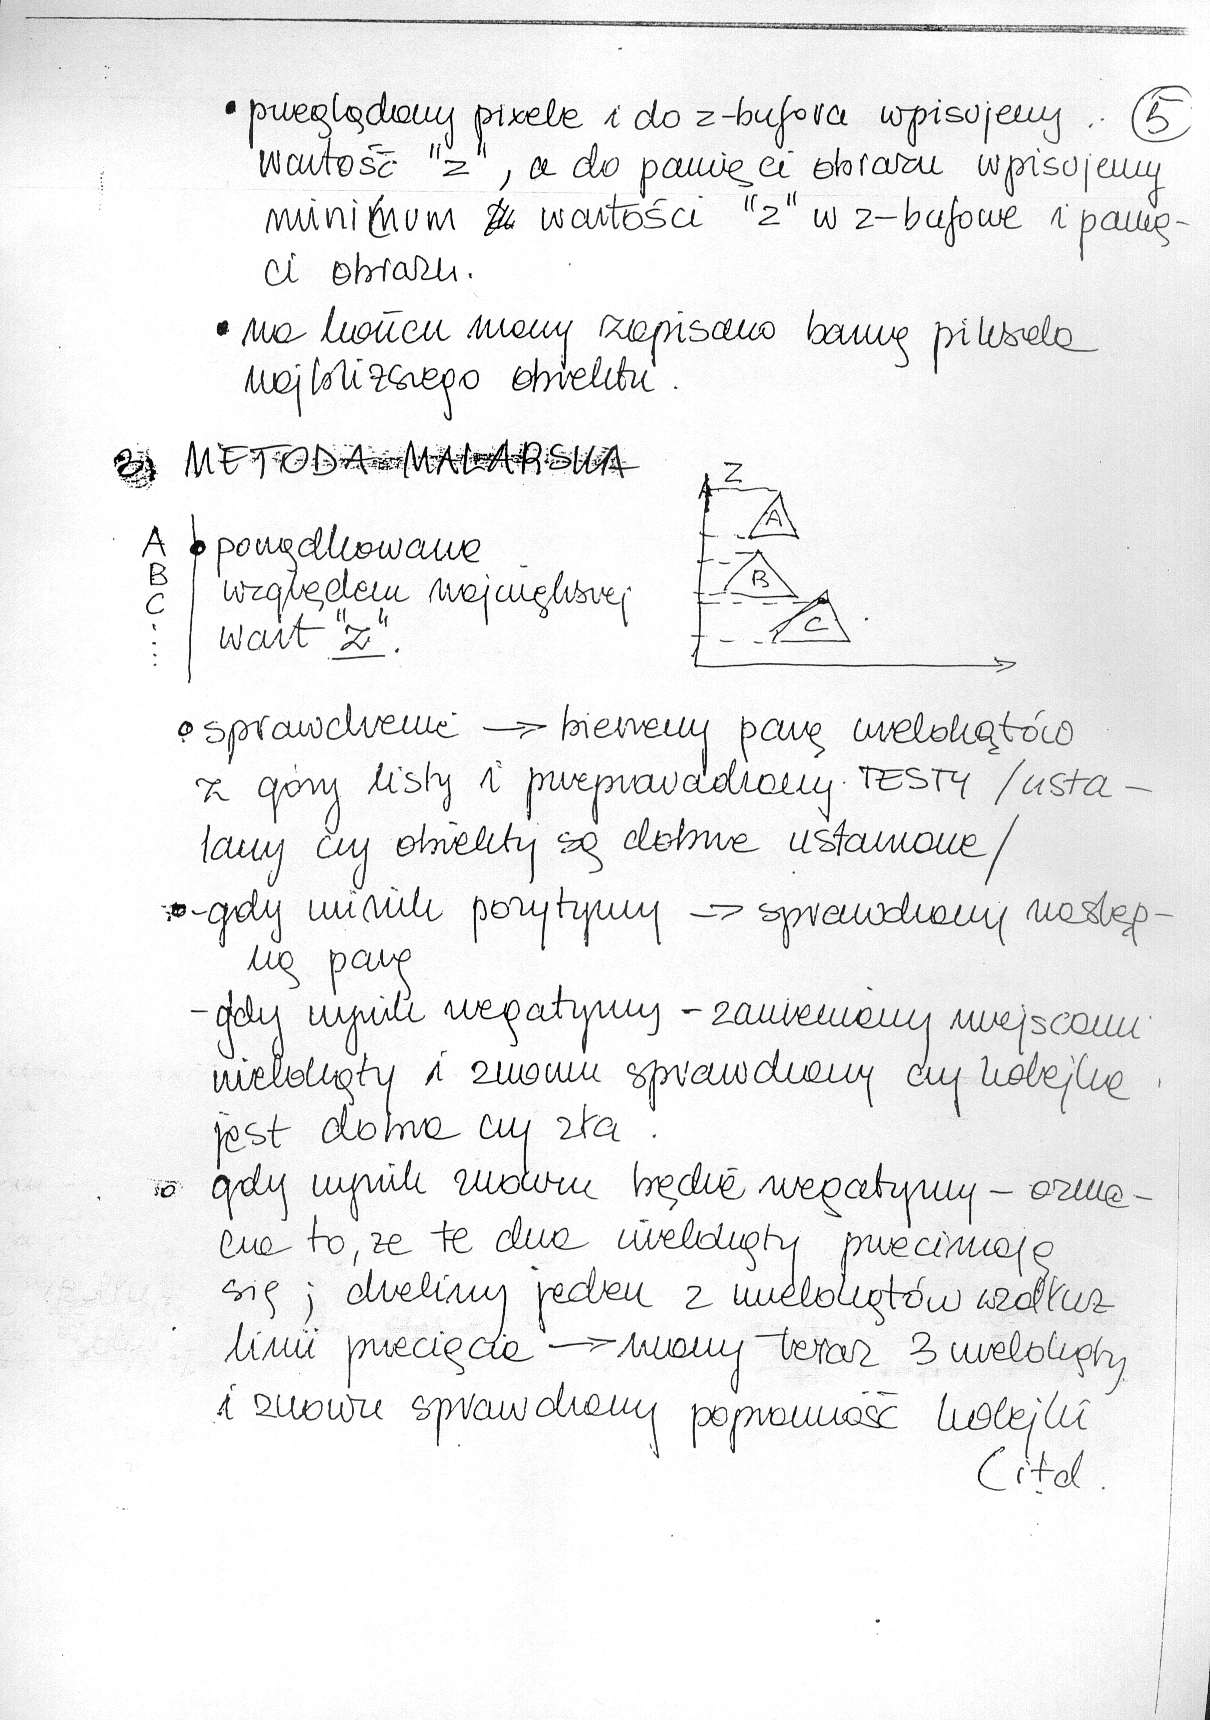 • przeglądamy pixele i do z-bufora wpisujemy
5
wartość "z", a do pamięci obrazu wpisujemy
minimum wartości "z" w z-buforze i pamię-
ci obrazu.
• na końcu mamy zapisano barwę piksela
najbliższego obiektu.
3) METODA MALARSKA
Z
A
B
C
A • porządkowanie
B względem największej
C wart "z".
• sprawdzenie → bierzemy parę wielokątów
z góry listy i przeprowadzamy TESTY /usta-
lamy czy obiekty są dobrze ustawione/
• - gdy wynik pozytywny → sprawdzamy następ-
ną parę
- gdy wynik negatywny - zamieniamy miejscami
wielokąty i znowu sprawdzamy czy kolejka
jest dobra czy zła.
• gdy wynik znowu będzie negatywny - ozna-
cza to, że te dwa wielokąty przecinają
się; dzielimy jeden z wielokątów wzdłuż
linii przecięcia → mamy teraz 3 wielokąty
i znowu sprawdzamy poprawność kolejki
(itd.